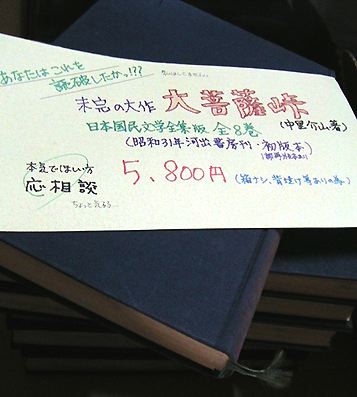 あなたはこれを
読破したかっ!??
未完の大作 大菩薩峠
(中里介山著)
日本国民文学全集版 全8巻
(昭和31年河出書房刊・初版本)
本気でほしい方
応相談
5,800円
(箱ナシ、背焼け等ありの為。)
ちょっと気弱……